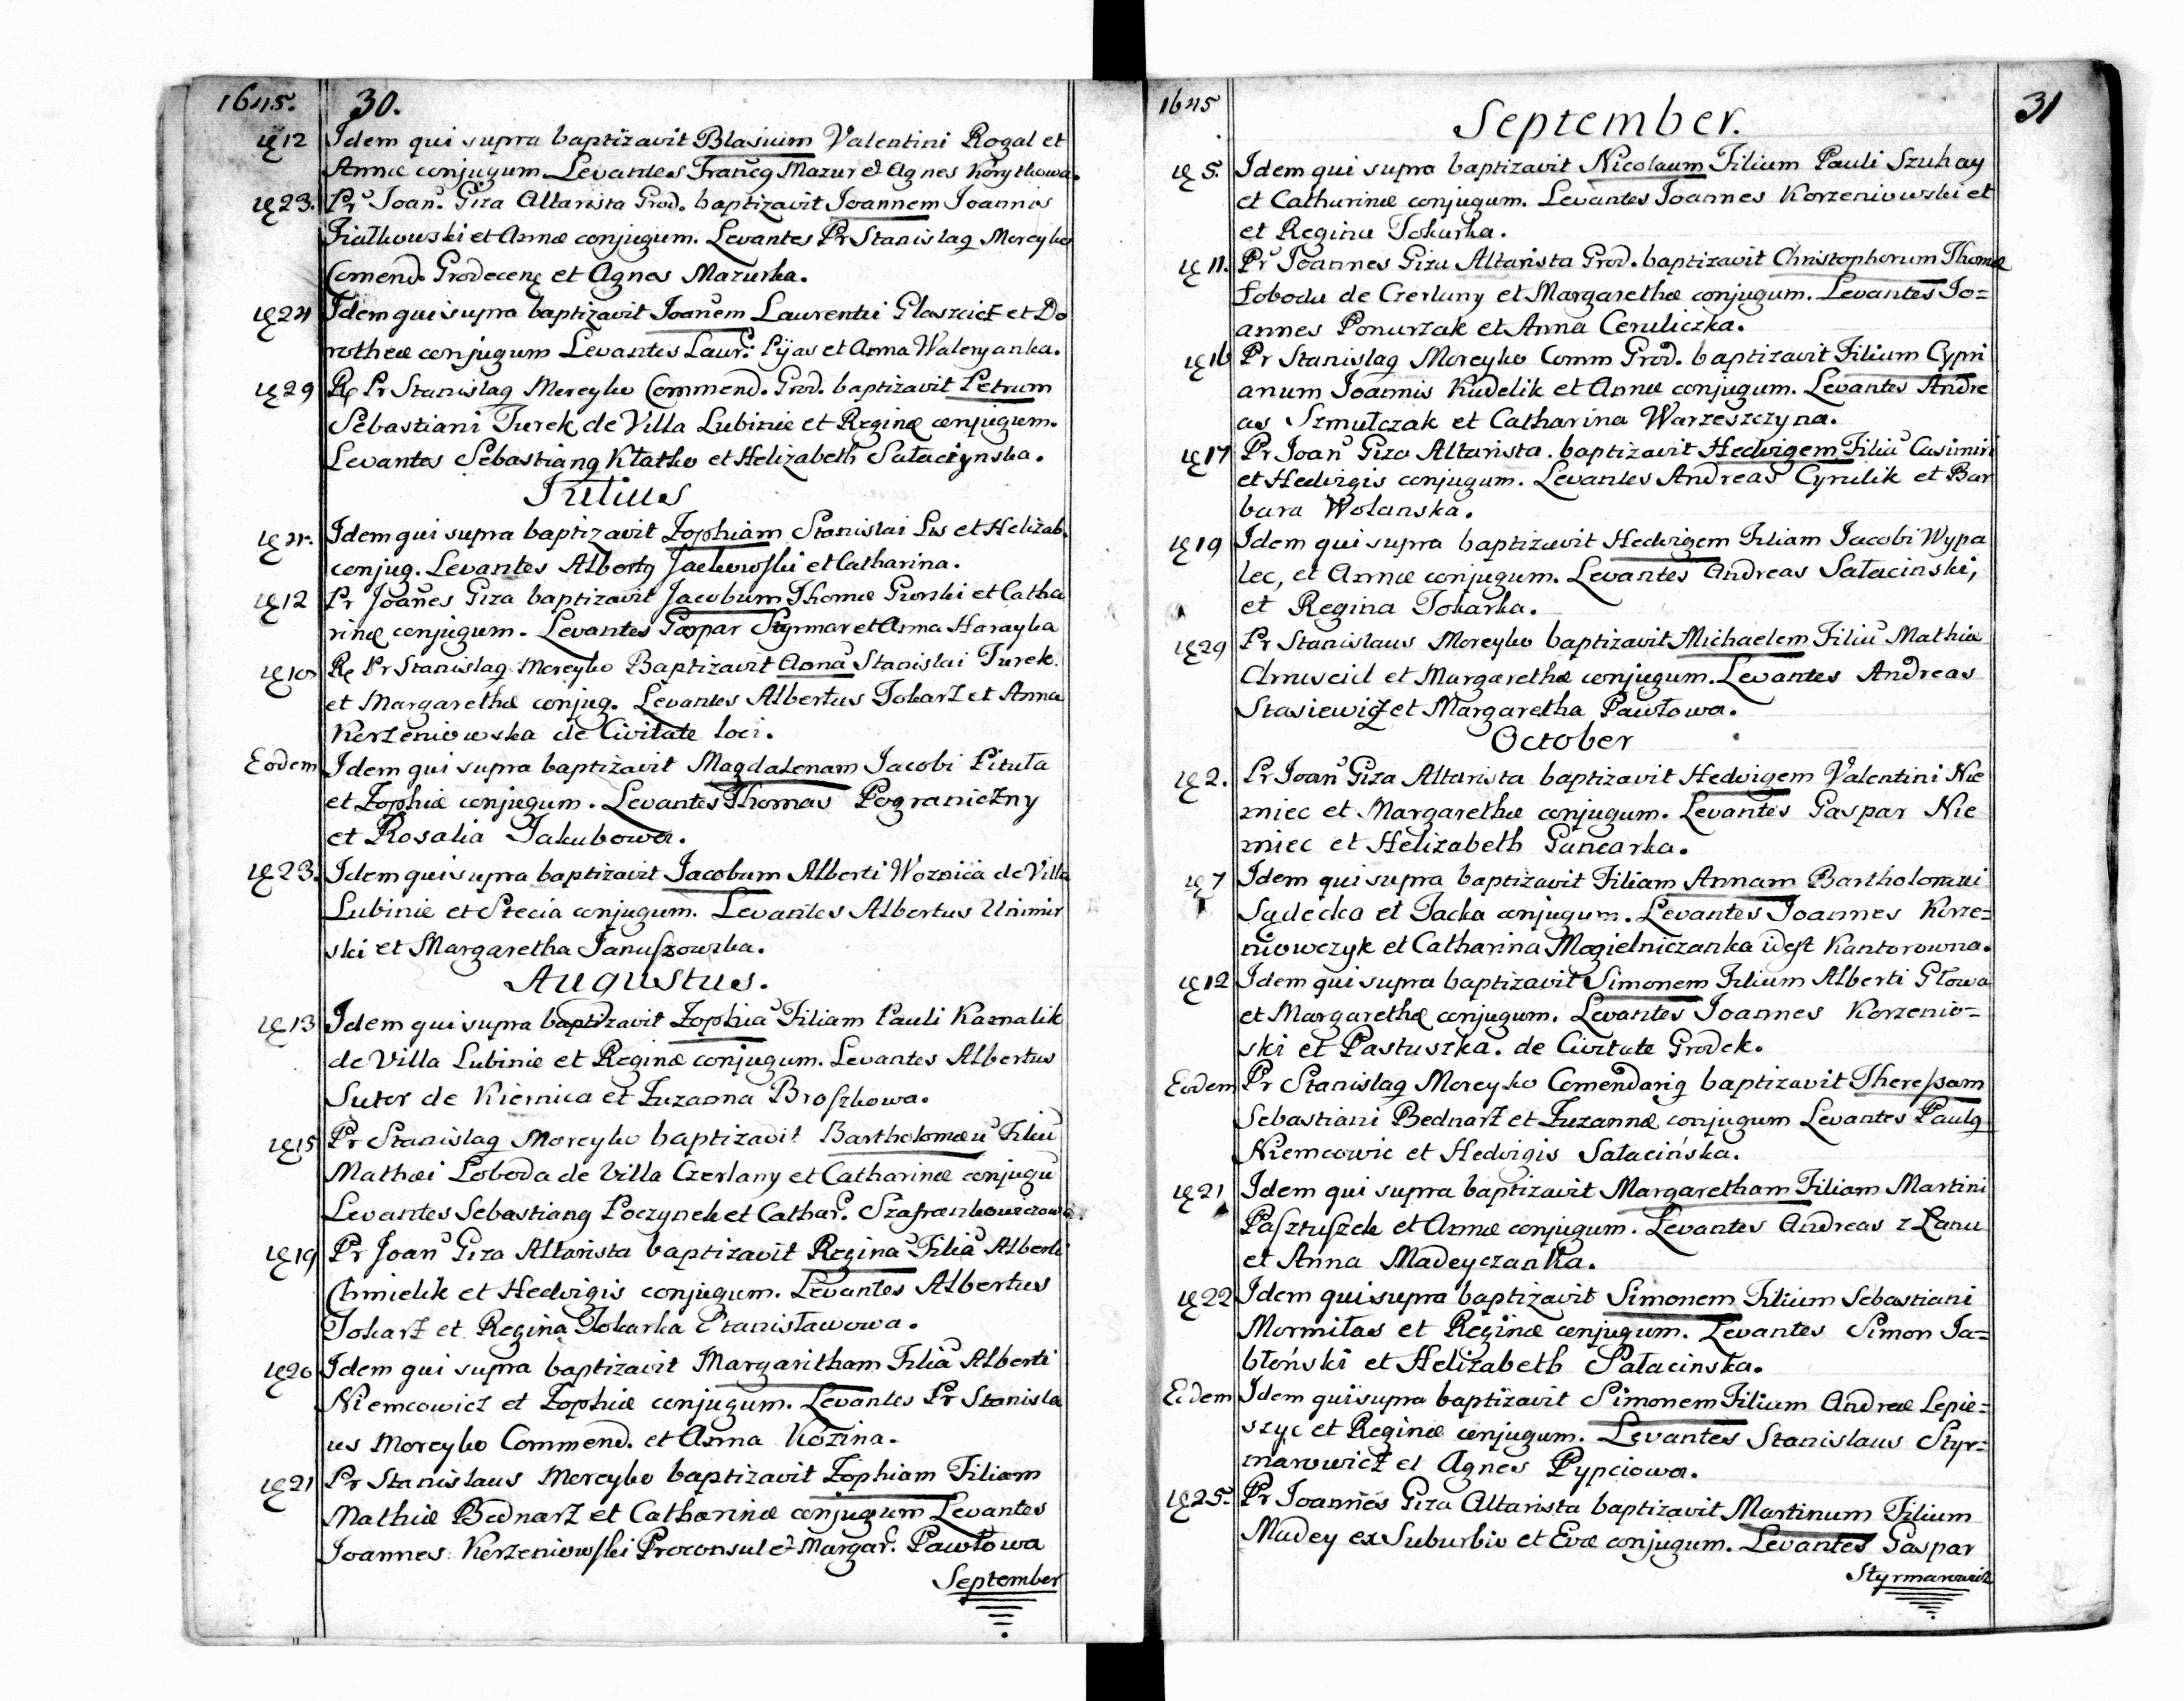 1645. 30.
12 Idem qui supra baptizavit Blasium Valentini Rogal et
Annæ conjugum Levantes Francq Mazur et Agnes Korytkowa.
23. Pr Joan. Giza Altarista Grod. baptizavit Joannem Joannis
Fiałkowski et Annæ conjugum. Levantes Pr Stanislaq Moreyko
Comend. Grodecenq et Agnes Mazurka.
24 Idem qui supra baptizavit Joanem Laurentii Glaszcict et Do
rotheæ conjugum Levantes Laur: Pijas et Anna Waleryanka.
29 R Pr Stanislaq Moreyko Commend. Grod. baptizavit Petrum
Sebastiani Turek de Villa Lubinie et Reginæ conjugum.
Levantes Sebastianq Kłatko et Helizabeth Sałaciynska.
Julius
4. Idem qui supra baptizavit Zophiam Stanislai Lis et Helizab.
conjug. Levantes Albertq Jackowski et Catharina.
12 Pr Joanes Giza baptizavit Jacobum Thomæ Gurski et Catha
rinæ conjugum. Levantes Gaspar Styrmar et Anna Harayka
10 R Pr Stanislaq Moreyko Baptizavit Anna Stanislai Turek
et Margarethæ conjug. Levantes Albertus Tokarz et Anna
Korzeniowska de Civitate loci.
Eodem Idem qui supra baptizavit Magdalenam Jacobi Pituła
et Zophiæ conjugum. Levantes Thomas Pograniczny
et Rosalia Jakubowa.
23. Idem qui supra baptizavit Jacobum Alberti Woznica de Villa
Lubinie et Stecia conjugum. Levantes Albertus Unimir
ski et Margaretha Januszowska.
Augustus.
13 Idem qui supra baptizavit Zophia Filiam Pauli Kamalik
de Villa Lubinie et Reginæ conjugum. Levantes Albertus
Sutor de Kiernica et Zuzanna Broszkowa.
15 Pr Stanislaq Moreyko baptizavit Bartholomæu Filiu
Mathæi Loboda de Villa Czerlany et Catharinæ conjugu
Levantes Sebastianq Poczynek et Cathar. Szafrankowczowa.
19 Pr Joan Giza Altarista baptizavit Regina Filia Alberti
Chmielik et Hedvigis conjugum. Levantes Albertus
Tokarz et Regina Tokarka Stanisławowa.
20 Idem qui supra baptizavit Margaritham Filia Alberti
Niemcowicz et Zophiæ conjugum. Levantes Pr Stanisla
us Moreyko Commend. et Anna Kozina.
21 Pr Stanislaus Moreyko baptizavit Zophiam Filiam
Mathiæ Bednarz et Catharinæ conjugum Levantes
Joannes Korzeniowski Proconsul et Margar. Pawłowa
September
1645 31
September.
5. Idem qui supra baptizavit Nicolaum Filium Pauli Szuhay
et Catharinæ conjugum. Levantes Joannes Korzeniowski et
et Regina Tokarka.
11. Pr Joannes Giza Altarista Grod. baptizavit Christophorum Thomæ
Łoboda de Czerlany et Margarethæ conjugum. Levantes Jo=
annes Ponurzak et Anna Ceruliczka.
16 Pr Stanislaq Moreyko Comm Grod. baptizavit Filium Cypri
anum Joannis Kudelik et Annæ conjugum. Levantes Andre
as Szmulczak et Catharina Warzeszczyna.
17 Pr Joan Giza Altarista. baptizavit Hedvigem Filia Casimiri
et Hedvigis conjugum. Levantes Andreas Cyrulik et Bar
bara Wolanska.
19 Idem qui supra baptizavit Hedvigem Filiam Jacobi Wypa
lec, et Annæ conjugum. Levantes Andreas Sałacinski,
et Regina Tokarka.
29 Pr Stanislaus Moreyko baptizavit Michaelem Filiu Mathiæ
et Margarethæ conjugum. Levantes Andreas
Stasiewicz et Margaretha Pawłowa.
October
2. Pr Joan Giza Altarista baptizavit Hedvigem Valentini Nie
miec et Margarethæ conjugum. Levantes Gaspar Nie
miec et Helizabeth Gancarka.
7 Idem qui supra baptizavit Filiam Annam Bartholomæi
Sądecka et Jacka conjugum. Levantes Joannes Korze=
niowczyk et Catharina Mogielniczanka idest Kantorowna.
12 Idem qui supra baptizavit Simonem Filium Alberti Głowa
et Margarethæ conjugum. Levantes Joannes Korzenio=
ski et Pastuszka. de Civitate Grodek.
Eodem Pr Stanislaq Moreyko Comendariq baptizavit Theressam
Sebastiani Bednarz et Zuzannæ conjugum Levantes Paulq
Niemcowic et Hedvigis Sałacińska.
21 Idem qui supra baptizavit Margaretham Filiam Martini
Pasztuszek et Annæ conjugum. Levantes Andreas z Łanu
et Anna Madeyczanka.
22 Idem qui supra baptizavit Simonem Filium Sebastiani
Mormiłas et Reginæ conjugum. Levantes Simon Ja=
błoński et Helizabeth Sałacinska.
Eodem Idem qui supra baptizavit Simonem Filium Andreæ Lepie=
szyc et Reginæ conjugum. Levantes Stanislaus Styr=
marowicz et Agnes Pypciowa.
25. Pr Joannes Giza Altarista baptizavit Martinum Filium
Madey ex Suburbio et Evæ conjugum. Levantes Gaspar
Styrmarowicz